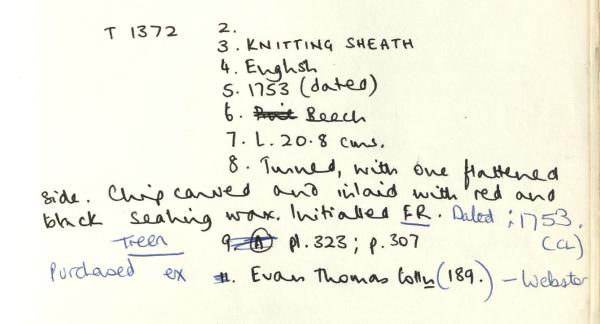 T 1372 2.
3. KNITTING SHEATH
4. English
5. 1753 (dated)
6. Beech
7. L. 20.8 cms.
8. Turned, with one flattened
side. Chip carved and inlaid with red and
black sealing wax. Initialled ER. Dated; 1753.
Treen 9. A pl. 323; p. 307 (CL)
Purchased ex 11. Evan Thomas Colln (189.) - Webster